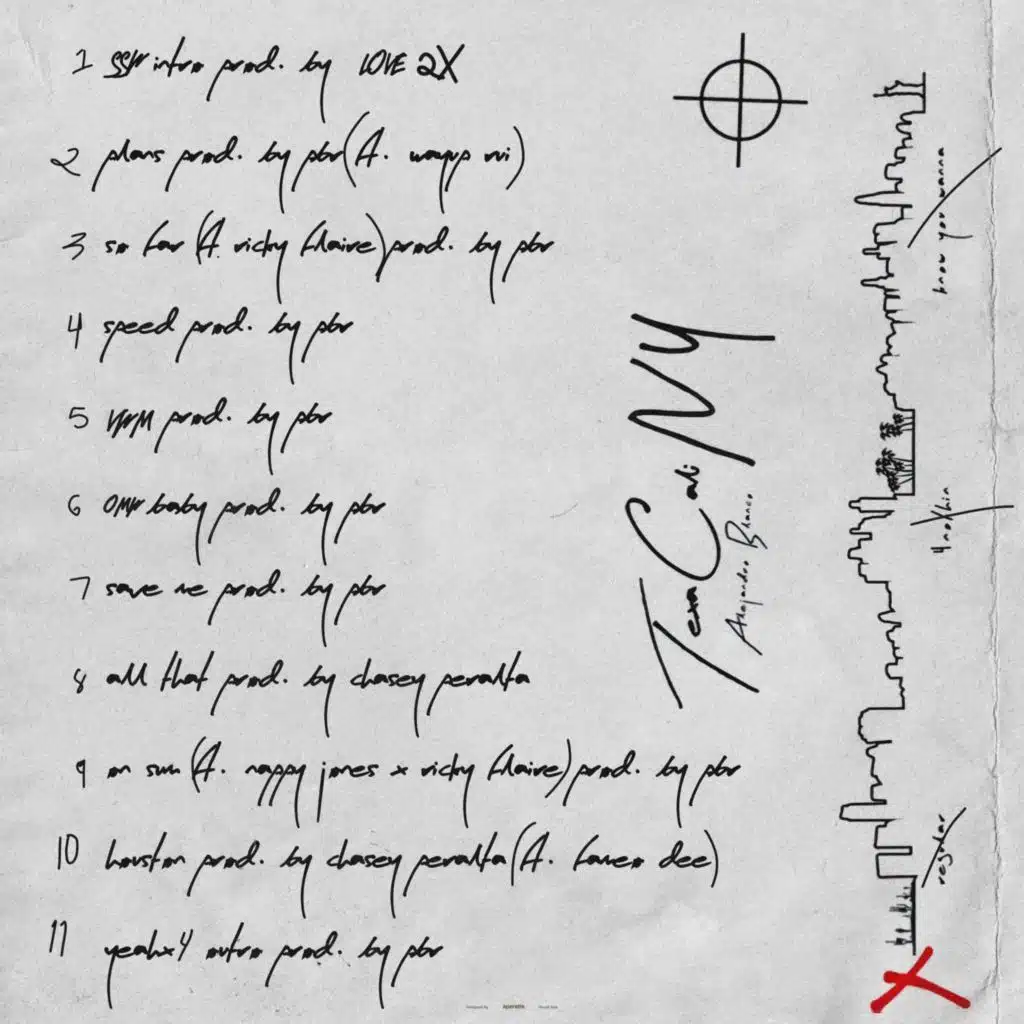 1 SSW intro prod. by LOVE 2X
2 plans prod. by pbr (ft. wayup rvi)
3 so far (ft. ricky flaire) prod. by pbr
4 speed prod. by pbr
5 prod. by pbr
6 baby prod. by pbr
7 save me prod. by pbr
8 all that prod. by chasey peralta
9 on sum (ft. nappy jones x ricky flaire) prod. by pbr
10 houston prod. by chasey peralta (ft. faneo dee)
11 yeahx4 outro prod. by pbr
TexaCali NY
Alejandro Blanco
know you wanna
regular